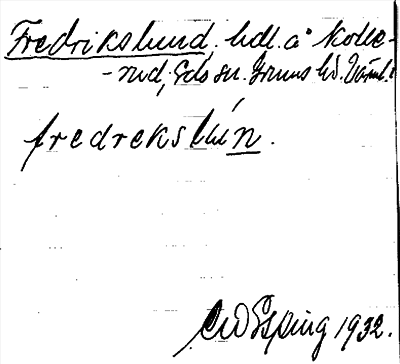 Fredrikslund, hdl. å Kolle-
-rud, Eds sn. Grums hd. Värml.
fredrekslún.
CWEsping 1932.